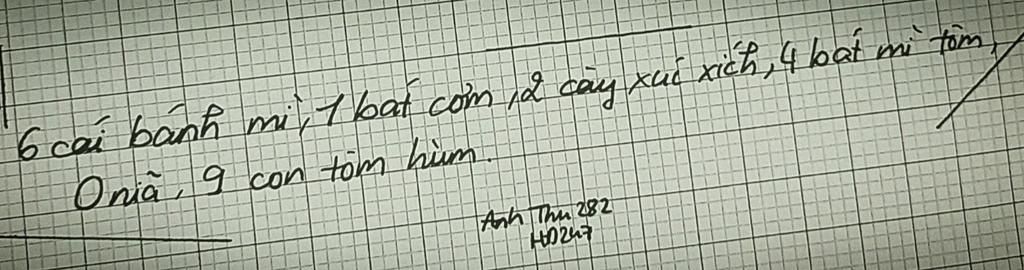 6 cái bánh mì, 1 bát cơm, 2 cây xúc xích, 4 bát mì tôm,
0 nĩa, 9 con tôm hùm.
Anh Thu 282
HD247